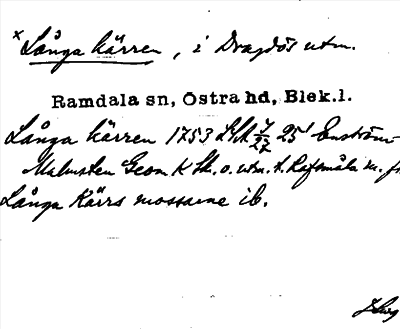 x Långa kärren, i Dragsös utm.
Ramdala sn, Östra hd, Blek.l.
Långa kärren 1753 7/27 25' Enström
Malmsten Geom K Sk. o. utm. t. Rafsmåla m. fl
Långa Kärrs mossarne ib.